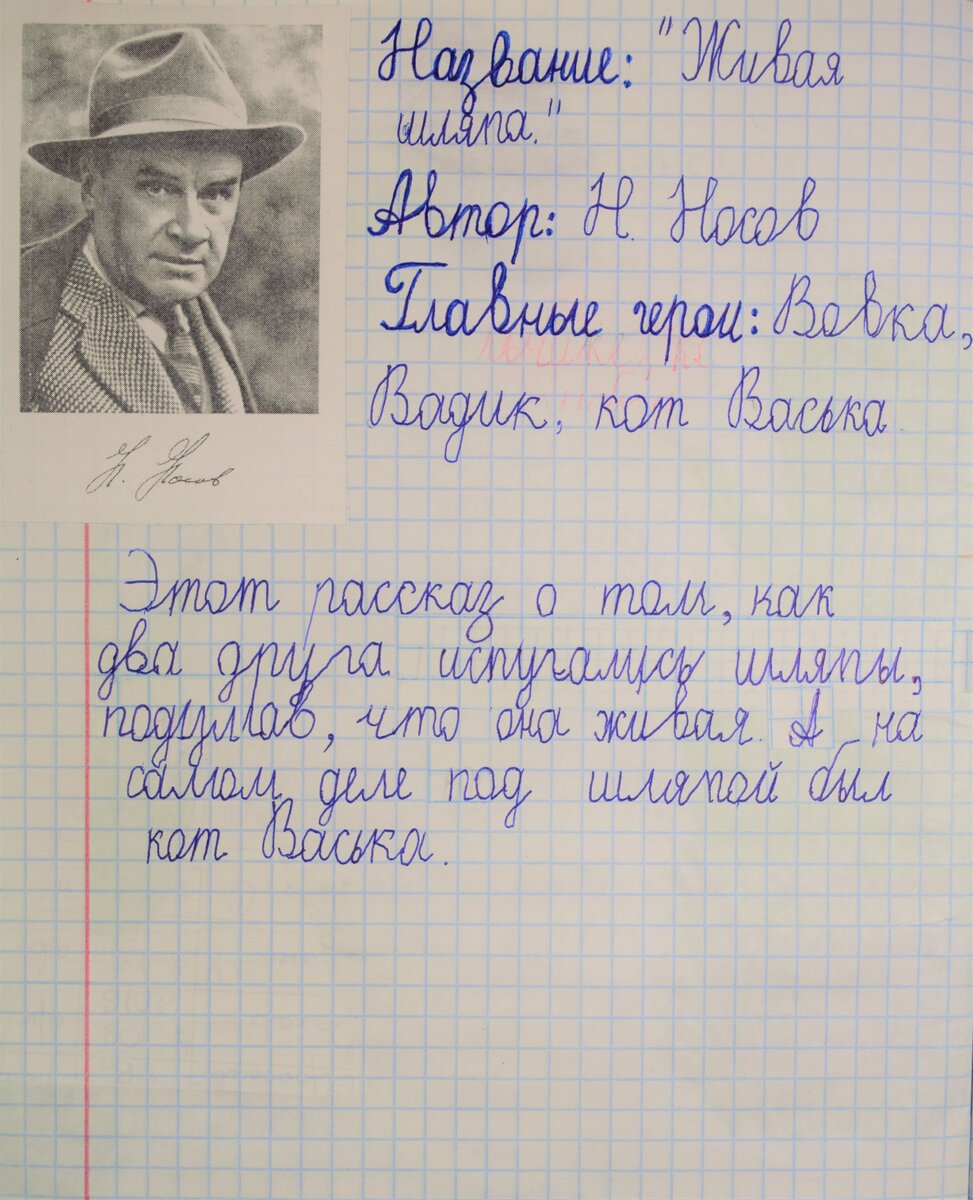 Название: "Живая
шляпа."
Автор: Н. Носов
Главные герои: Вовка,
Вадик, кот Васька.
Н. Носов
Этот рассказ о том, как
два друга испугались шляпы,
подумав, что она живая. А на
самом деле под шляпой был
кот Васька.